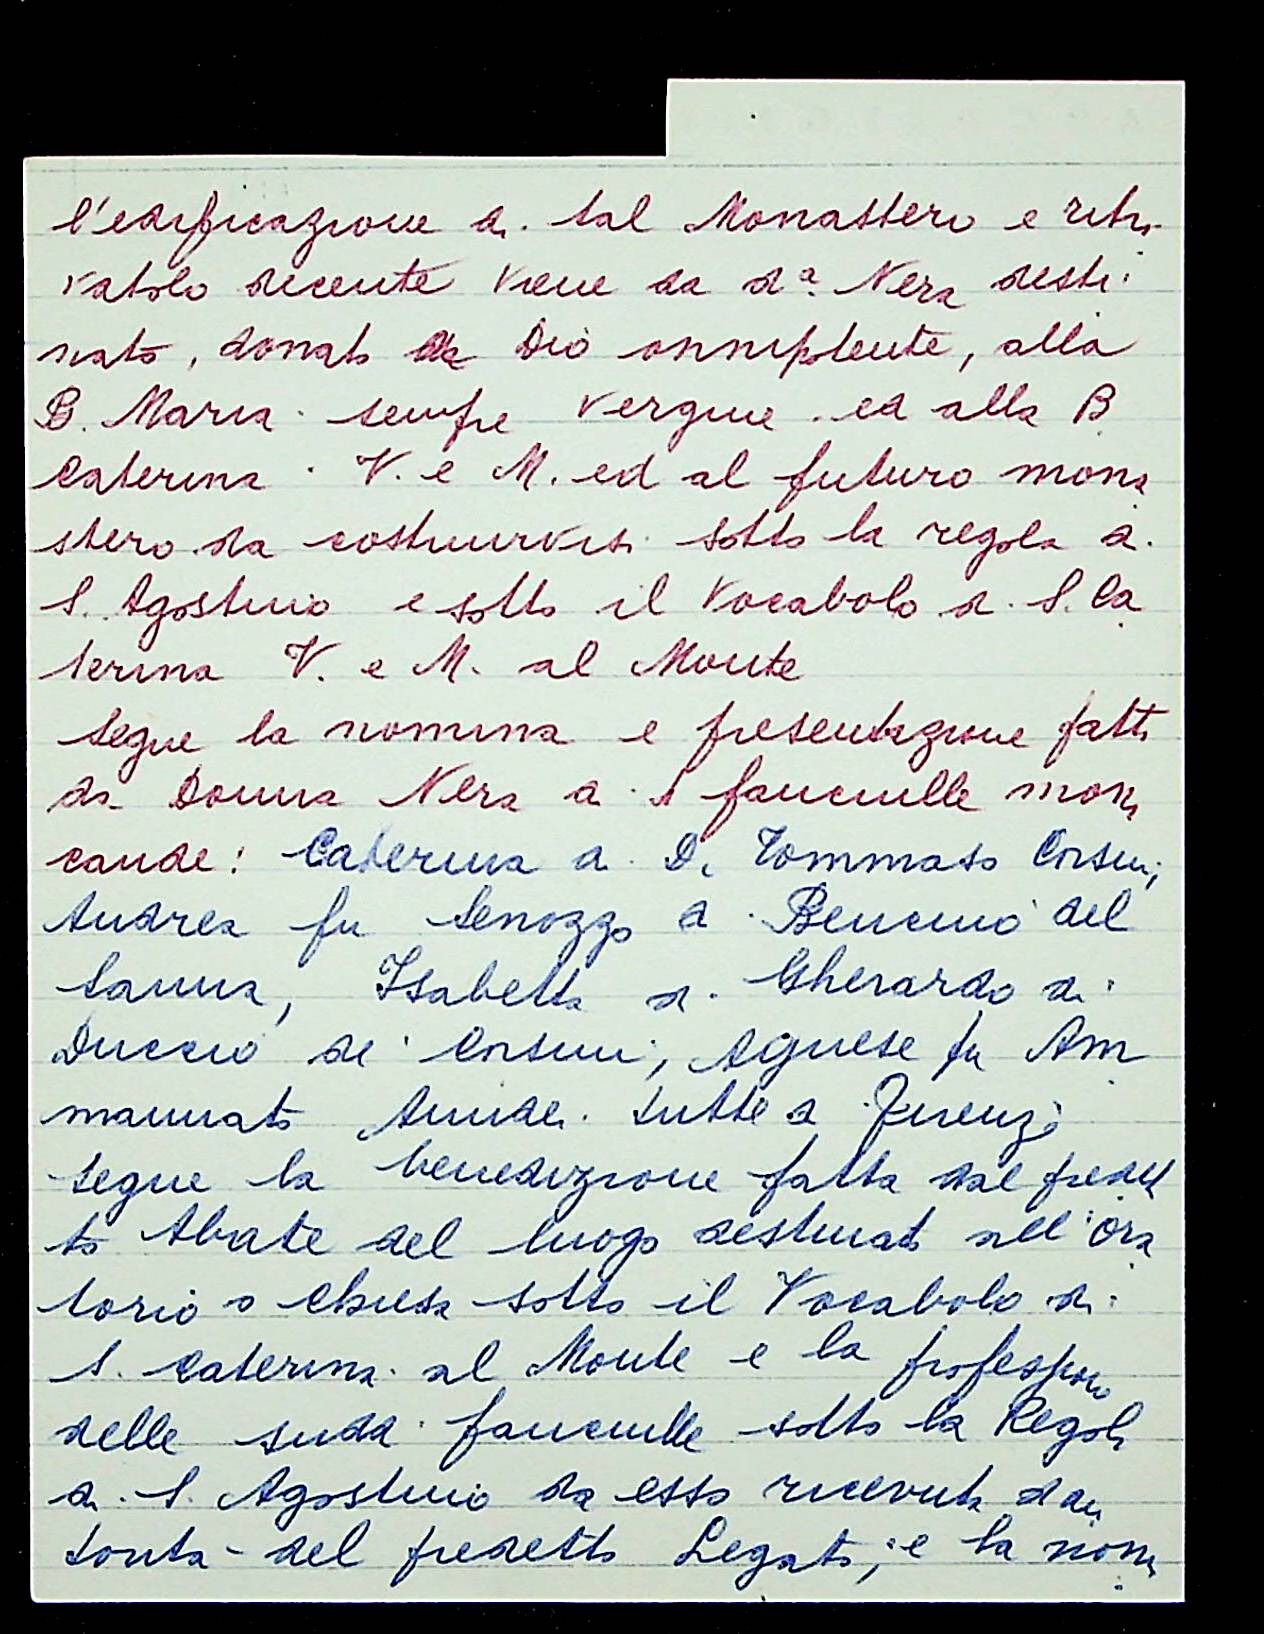 l'edificazione di tal Monastero e ritro
vatolo decente viene da dª Nera desti
nato, donato a Dio onnipotente, alla
B. Maria sempre Vergine ed alla B
Caterina V. e M. ed al futuro mona
stero da costruirvisi sotto la regola di
S. Agostino e sotto il Vocabolo di S. Ca
terina V. e M. al Monte
Segue la nomina e presentazione fatta
da Donna Nera di fanciulle mona
cande: Caterina di D. Tommaso Corsini,
Andrea fu Senozzo di Bencino del
Sanna, Isabetta di Gherardo di
Duccio de' Corsini, Agnese fu Am
mannato tutte di Firenze
Segue la benedizione fatta dal predet
to Abate del luogo destinato nell'Ora
torio o Chiesa sotto il Vocabolo di
S. Caterina al Monte e la professione
delle sudd. fanciulle sotto la Regola
di S. Agostino da esso ricevuta d'au
torità del predetto Legato; e la nom